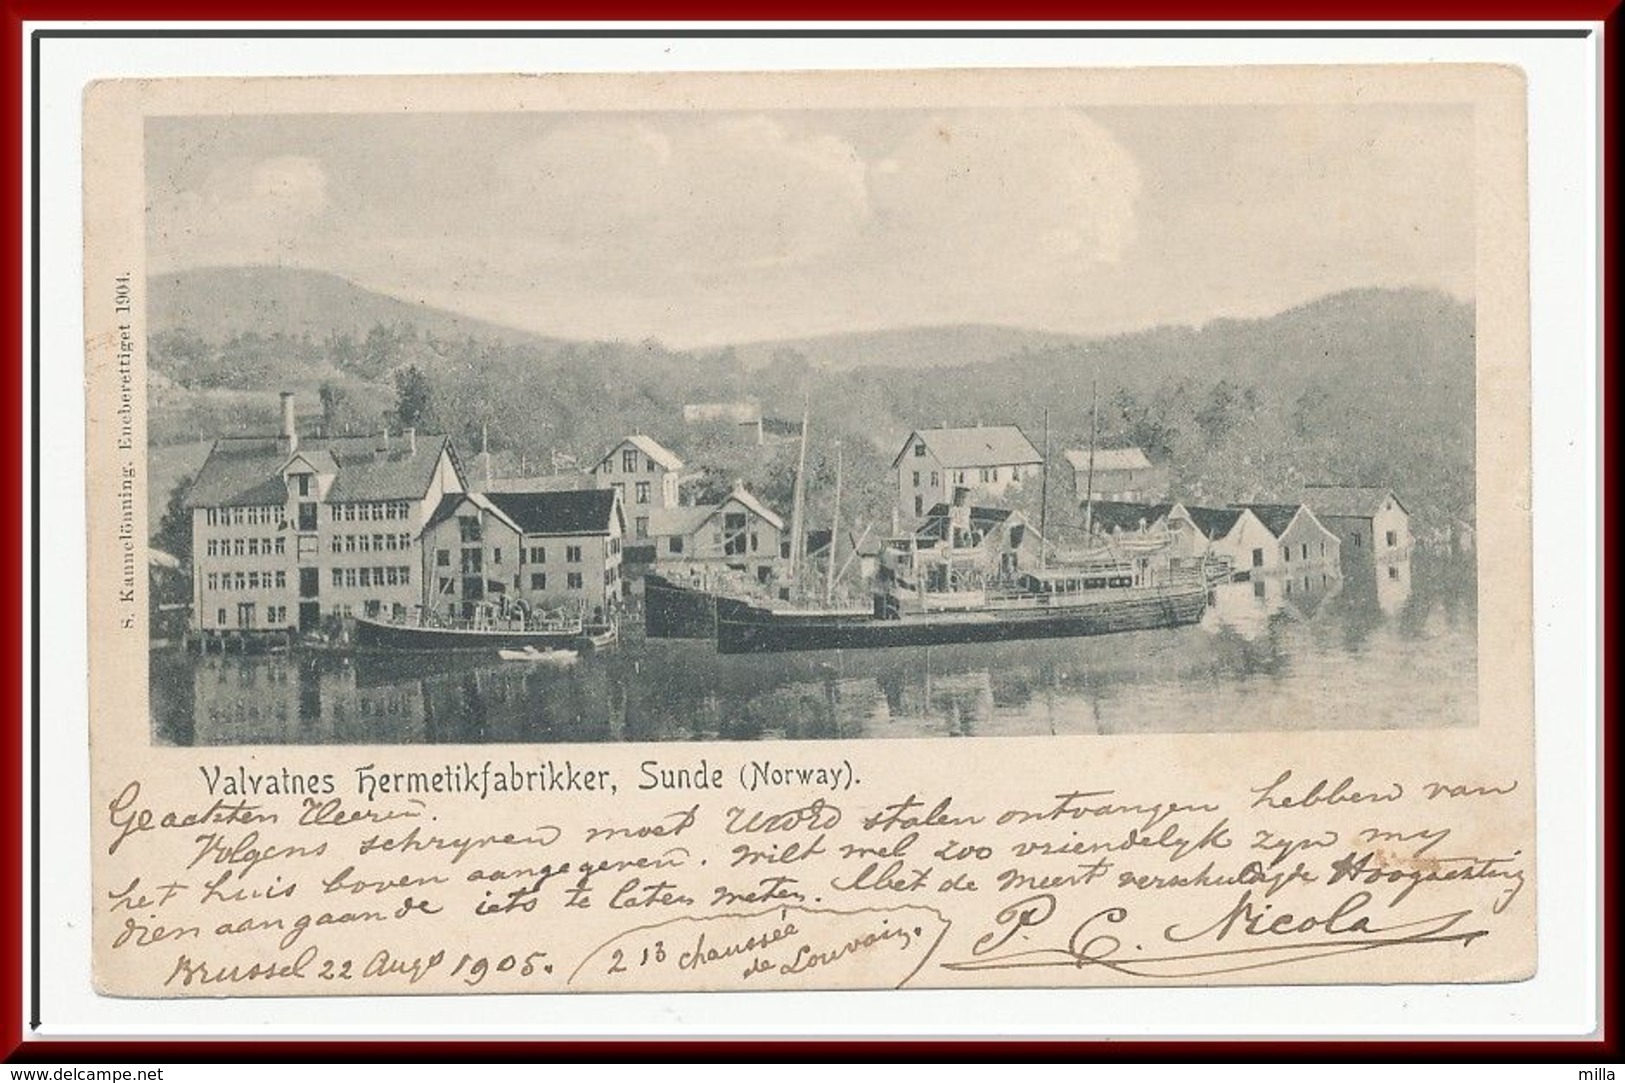 S. Kannelönning. Eneberettiget 1904.
Valvatnes Hermetikfabrikker, Sunde (Norway).
Geachten Heeren.
Volgens schryven moet Uwed stalen ontvangen hebben van
het huis boven aangegeven. wilt wel zoo vriendelyk zyn my
dien aangaande iets te laten weten. Met de meest verschuldigde Hoogachting
Brussel 22 Augo 1905. 213 chaussée de Louvain. P. C. Nicola
www.delcampe.net
milla